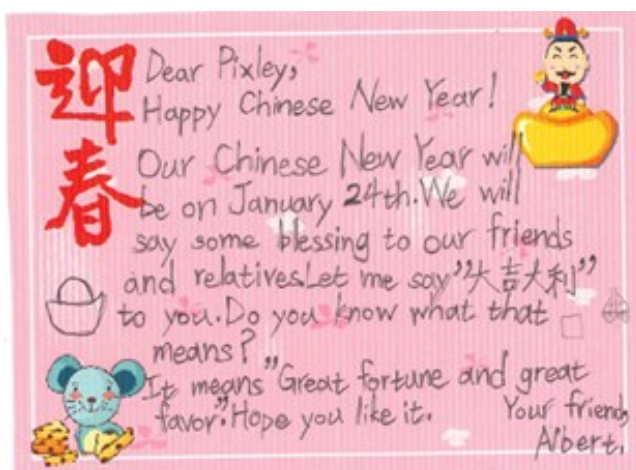 迎春
Dear Pixley,
Happy Chinese New Year!
Our Chinese New Year will
be on January 24th. We will
say some blessing to our friends
and relatives. Let me say "大吉大利"
to you. Do you know what that
means?
It means "Great fortune and great
favor." Hope you like it. Your friend,
Albert.